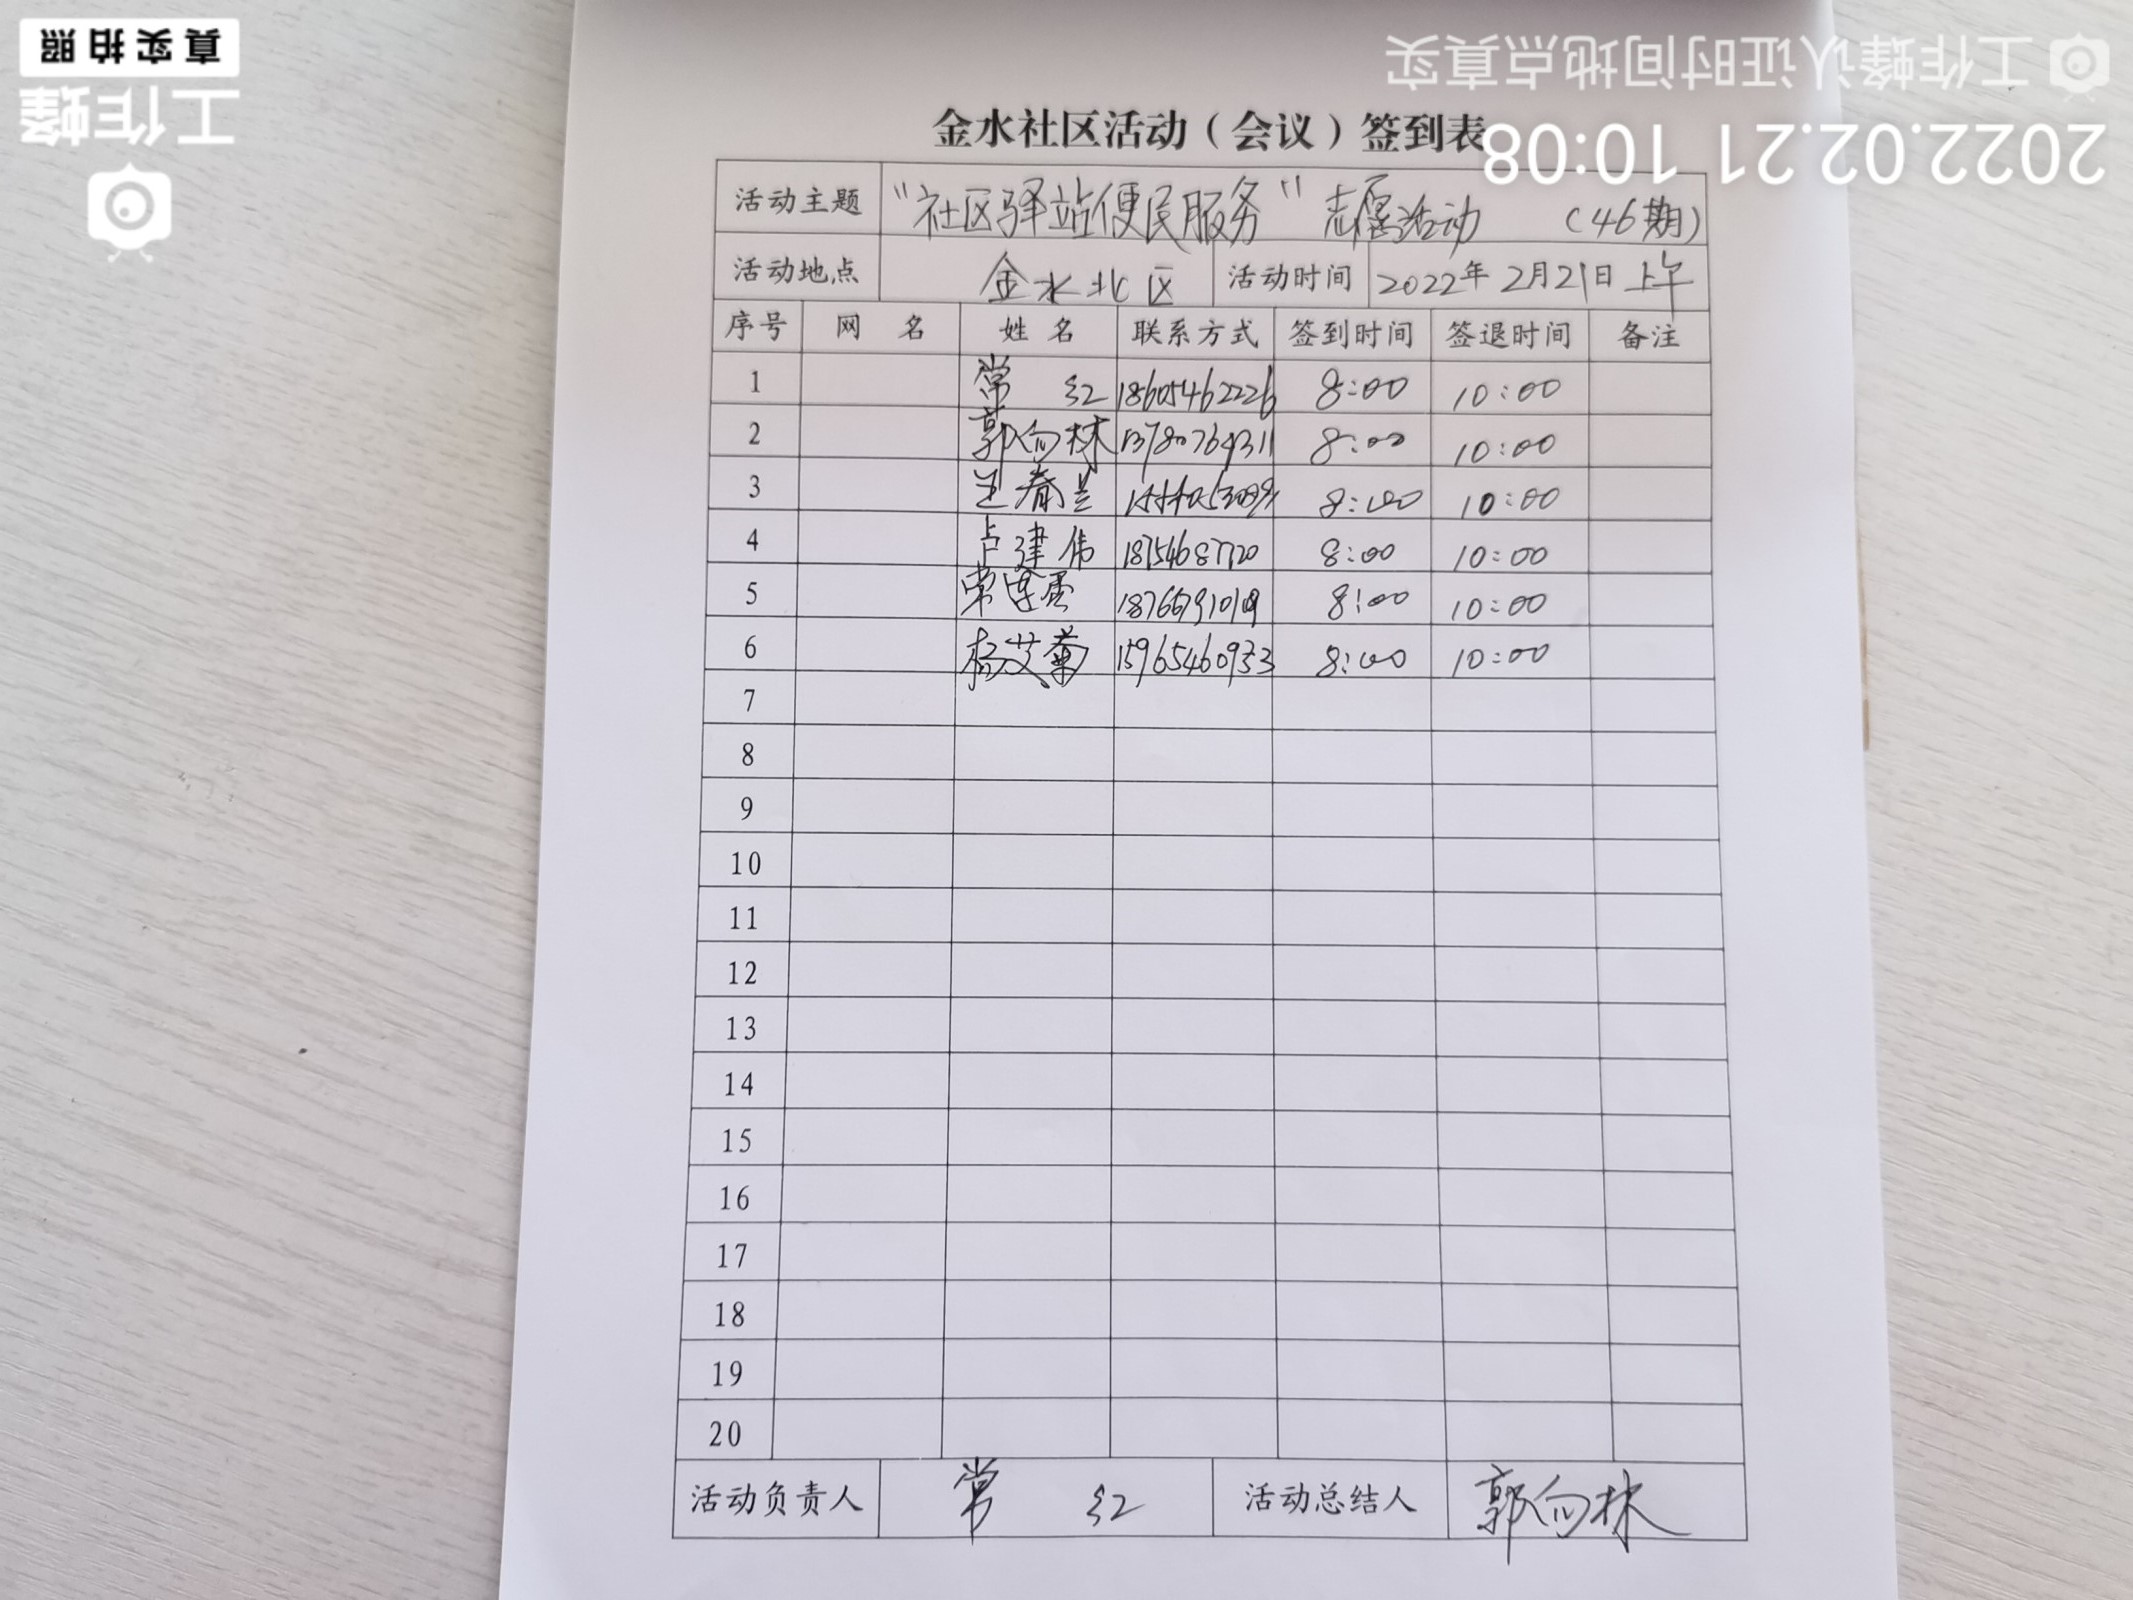 真实拍照
工作蜂
工作蜂认证时间地点真实
2022.02.21 10:08
金水社区活动（会议）签到表
活动主题 “社区驿站便民服务”志愿活动 （46期）
活动地点 金水北区 活动时间 2022年2月21日上午
序号 网名 姓名 联系方式 签到时间 签退时间 备注
1 常红 18605462226 8:00 10:00
2 郭向林 13780764311 8:00 10:00
3 王春兰 8:00 10:00
4 卢建伟 18754687720 8:00 10:00
5 常连香 8:00 10:00
6 杨艾菊 15965460933 8:00 10:00
7
8
9
10
11
12
13
14
15
16
17
18
19
20
活动负责人 常红 活动总结人 郭向林